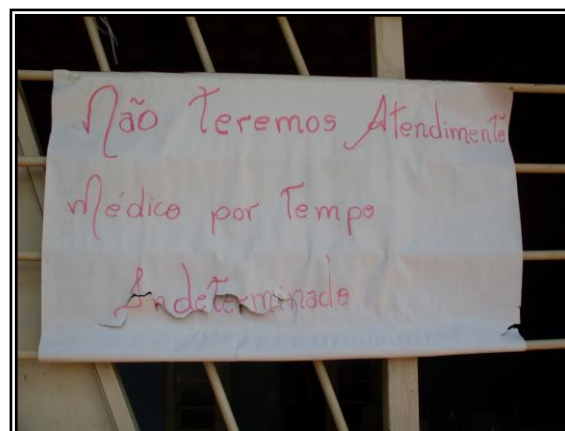 Não Teremos Atendimento
Médico por Tempo
Indeterminado.